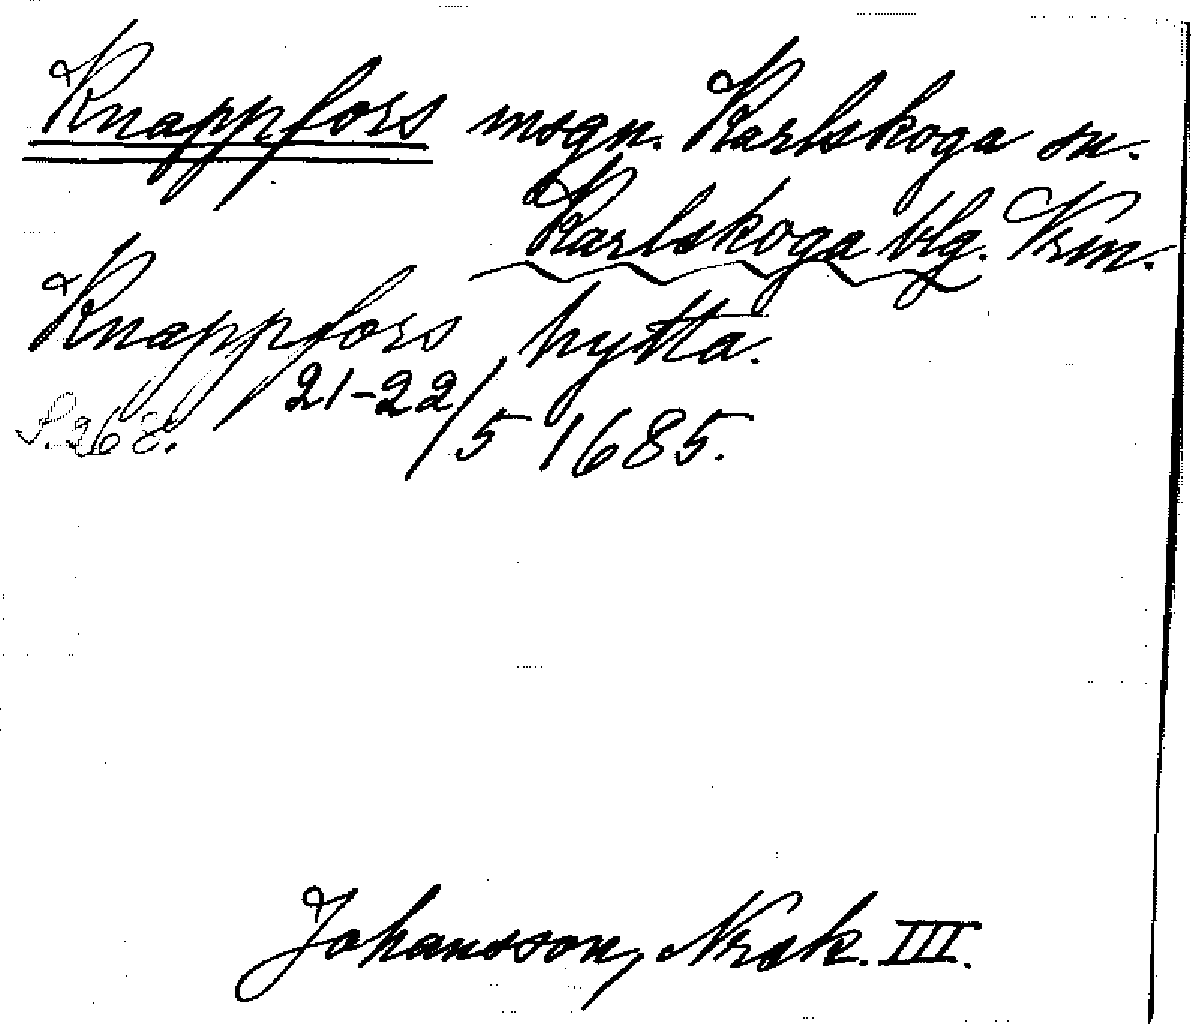 Knappfors msgn. Karlskoga sn.
Karlskoga blg. Vrm.
Knappfors hytta.
S. 268. 21-22/5 1685.
Johansson, Nrsk. III.